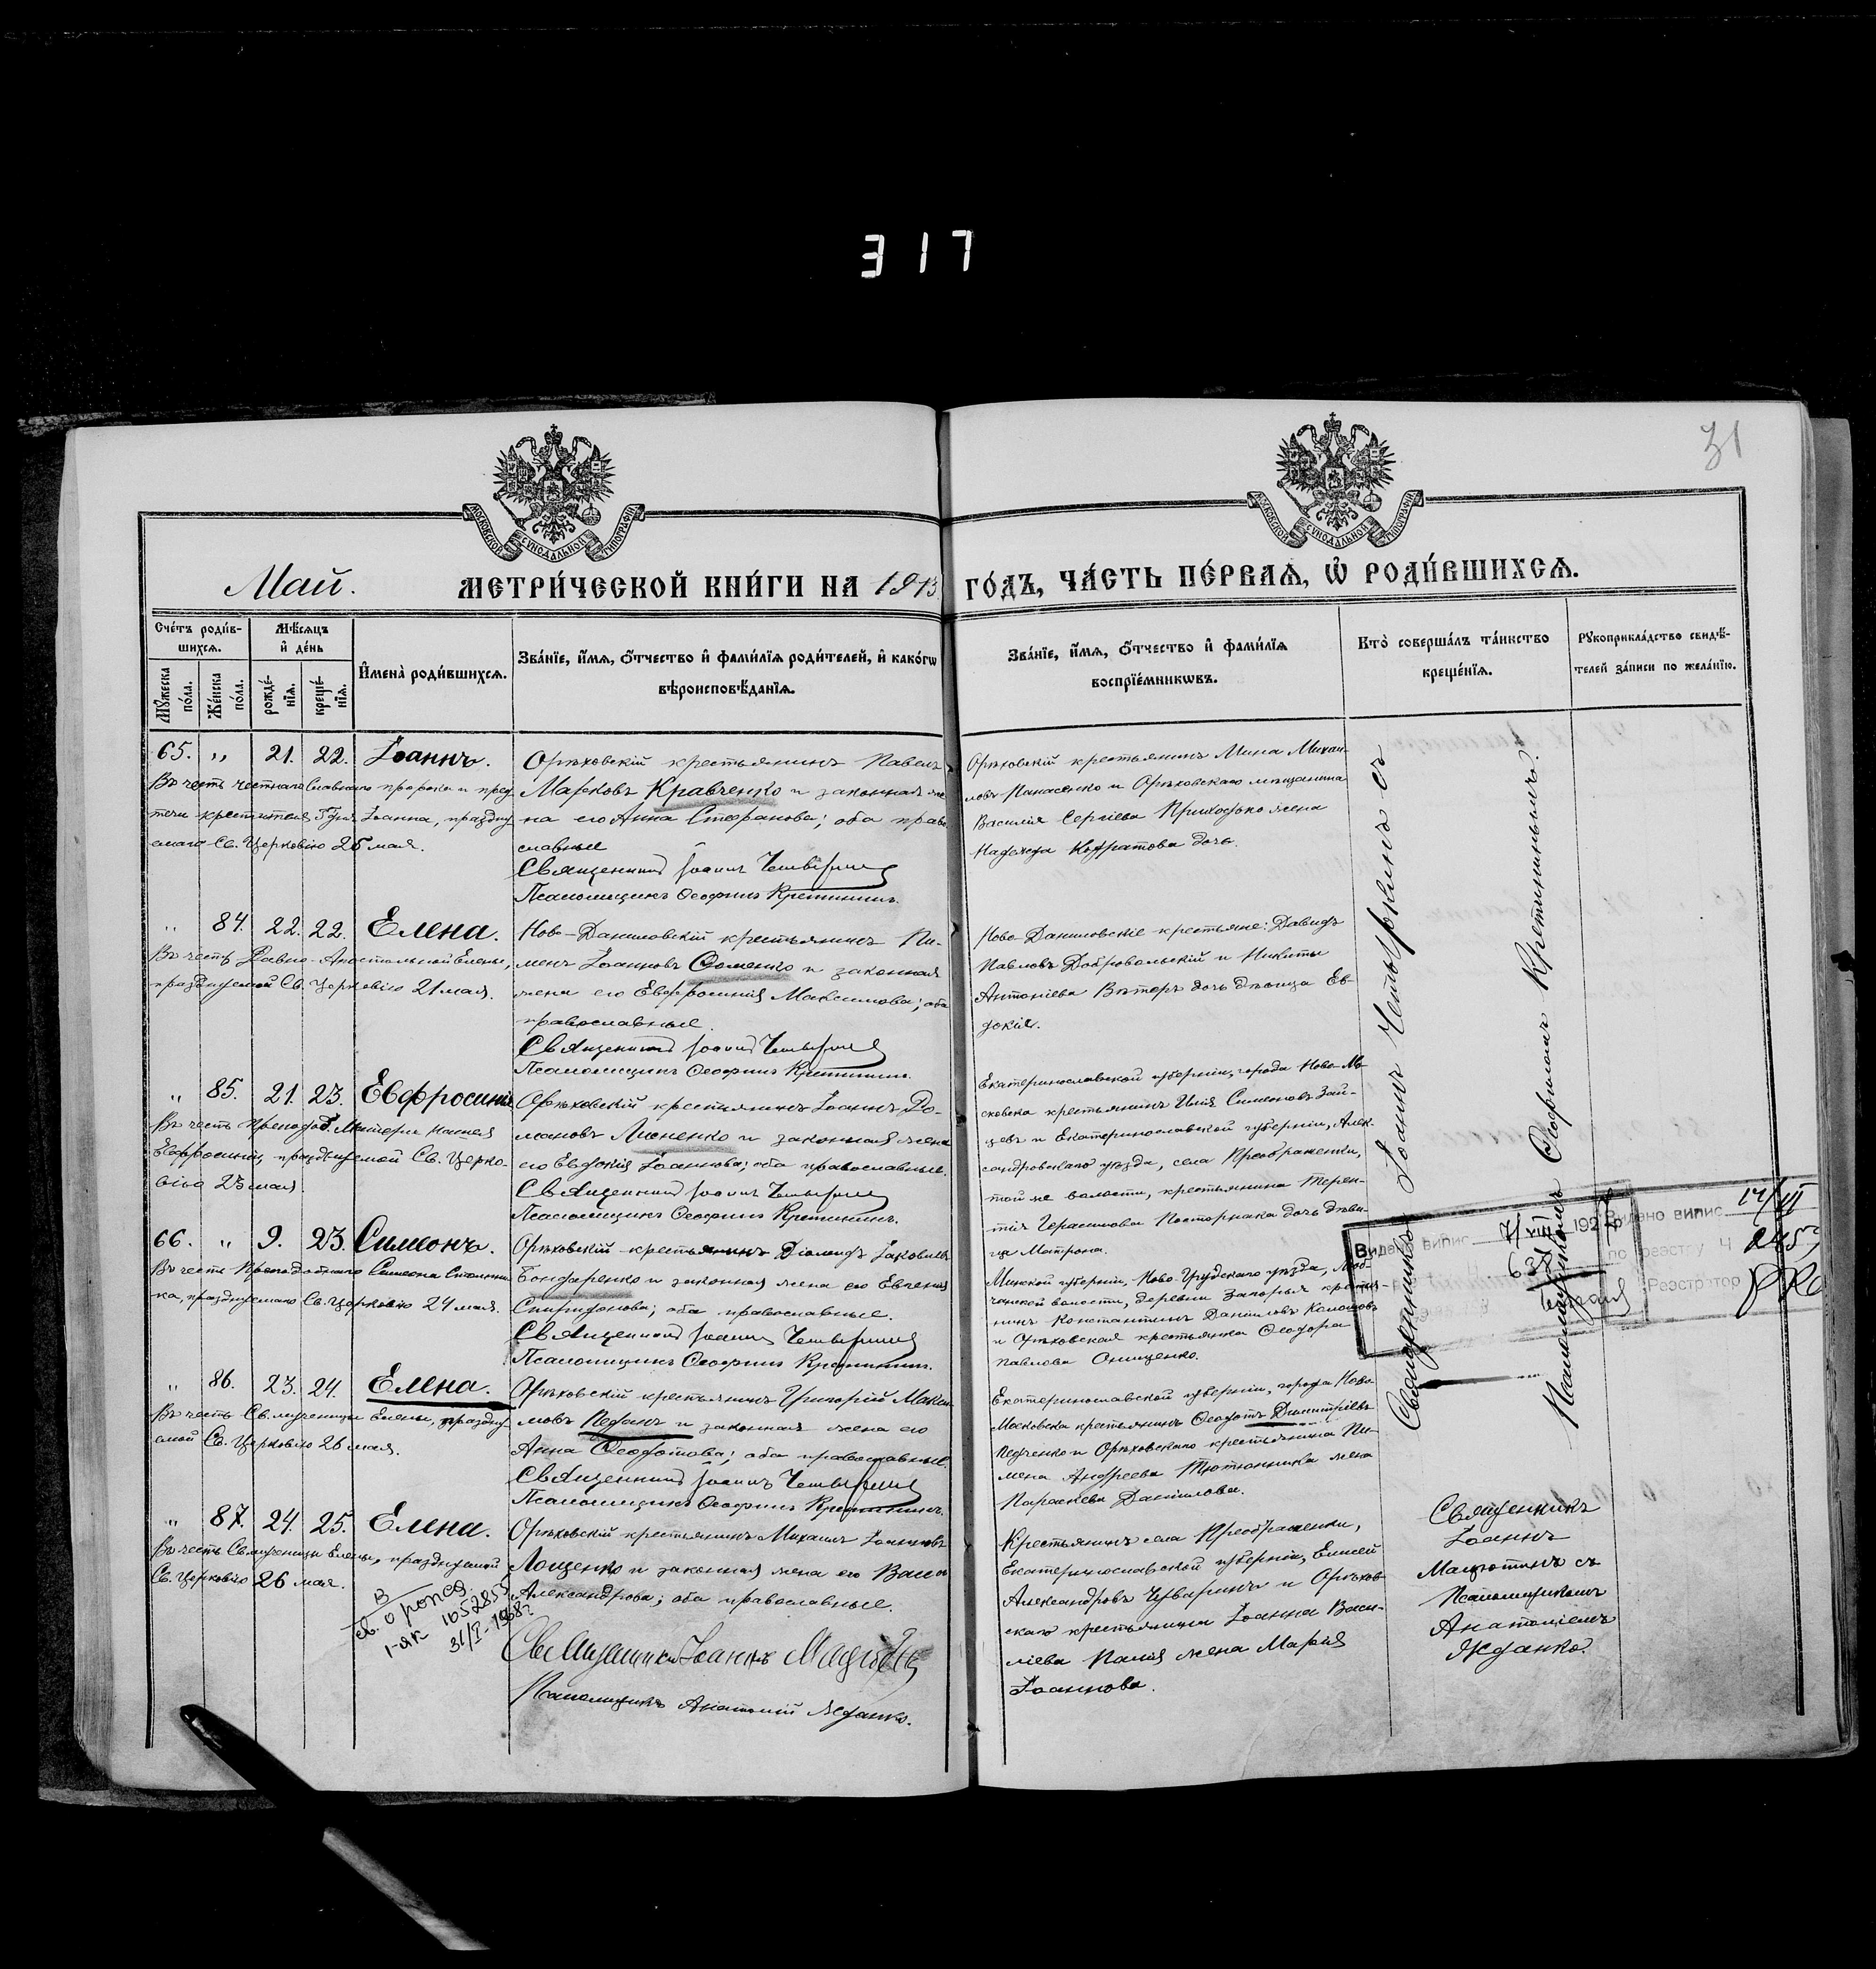 317
31
МОСКОВСКОЙ СѴНОДАЛЬНОЙ ТИПОГРАФІИ
МОСКОВСКОЙ СѴНОДАЛЬНОЙ ТИПОГРАФІИ
Май.
МЕТРИ́ЧЕСКОЙ КНИ́ГИ НА 1913
ГО́ДЪ, ЧА́СТЬ ПЕ́РВАѦ, Ѡ҆ РОДИ́ВШИХСѦ.
Сче́тъ роди́в-
шихсѧ.
Мѣ́сѧцъ
и҆ де́нь
Мꙋ́жеска по́ла.
Же́нска по́ла.
рожде́-
нїѧ.
креще́-
нїѧ.
И҆мена̀ роди́вшихсѧ.
Зва́нїе, и҆́мѧ, ѻ҆́тчество и҆ фами́лїѧ роди́телей, и҆ како́гѡ
вѣроисповѣ́данїѧ.
Зва́нїе, и҆́мѧ, ѻ҆́тчество и҆ фами́лїѧ
воспрїе́мникѡвъ.
Кто̀ соверша́лъ та́инство
креще́нїѧ.
Рꙋкоприкла́дство свидѣ́-
телей за́писи по жела́нїю.
65. „ 21. 22. Іоаннъ.
Въ честь честнаго славнаго пророка и пред-
течи крестителя Іоанна, праздну-
емаго Св. Церковію 25 мая.
Орѣховскій крестьянинъ Павелъ
Марковъ Кравченко и законная же-
на его Анна Стефанова; оба право-
славные
Священникъ Іоаннъ
Псаломщикъ Ѳеофилъ Кретининъ.
Орѣховскій крестьянинъ Мина Михаи-
ловъ Панасенко и Орѣховскаго мѣщанина
Василія Сергіева Приходько жена
Надежда Кодратова дочь.
„ 84. 22. 22. Елена.
Въ честь Равно-Апостольной Елены,
празднуемой Св. Церковію 21 мая.
Ново-Даниловскій крестьянинъ Пи-
менъ Іоанновъ Ѳоменко и законная
жена его Евфросинія Максимова; оба
православные.
Священникъ Іоаннъ
Псаломщикъ Ѳеофилъ Кретининъ.
Ново-Даниловскіе крестьяне: Давидъ
Павловъ Добровольскій и Никиты
Антоніева Вѣтеръ дочь дѣвица Ев-
докія.
„ 85. 21. 23. Евфросинія
Въ честь Преподоб. Матери нашея
Евфросиніи, празднуемой Св. Церко-
вію 23 мая.
Орѣховскій крестьянинъ Іоаннъ Ро-
мановъ Лисненко и законная жена
его Евдокія Іоаннова; оба православные.
Священникъ Іоаннъ
Псаломщикъ Ѳеофилъ Кретининъ.
Екатеринославской губерніи, города Ново-Мо-
сковска крестьянинъ Илія Симеоновъ Зай-
цевъ и Екатеринославской губерніи, Алек-
сандровскаго уѣзда, села Преображенки,
той же волости, крестьянина Терен-
тія Герасимова Пасторнака дочь дѣви-
ца Матрона.
66. „ 9. 23. Симеонъ.
Въ честь Преподобнаго Симеона Столпни-
ка, празднуемаго Св. Церковію 24 мая.
Орѣховскій крестьянинъ Діомидъ Іаковлевъ
Бондаренко и законная жена его Евгенія
Спиридонова; оба православные.
Священникъ Іоаннъ
Псаломщикъ Ѳеофилъ Кретининъ.
Минской губерніи, Ново-Грудскаго уѣзда,
волости, деревни Запорья крестья-
нинъ Константинъ Даниловъ
и Орѣховская крестьянка Ѳеодора
Павлова Онищенко.
„ 86. 23. 24. Елена.
Въ честь Св. мученицы Елены, праздну-
емой Св. Церковію 26 мая.
Орѣховскій крестьянинъ Григорій Макси-
мовъ Педанъ и законная жена его
Анна Ѳеодотова; оба православные.
Священникъ Іоаннъ
Псаломщикъ Ѳеофилъ Кретининъ.
Екатеринославской губерніи, города Ново-
Московска крестьянинъ Ѳеодотъ Димитріевъ
Педченко и Орѣховскаго крестьянина Пи-
мена Андреева Тютюнника жена
Параскева Данилова.
„ 87. 24. 25. Елена.
Въ честь Св. мученицы Елены, празднуемой
Св. Церковію 26 мая.
Орѣховскій крестьянинъ Михаилъ Іоанновъ
Лощенко и законная жена его Васса
Александрова; оба православные.
Священникъ Іоаннъ
Псаломщикъ Анатолій Жданко.
Крестьянинъ села Преображенки,
Екатеринославской губерніи, Елисей
Александровъ Чуваринъ и Орѣхов-
скаго крестьянина Іоанна Васи-
ліева жена Марія
Іоаннова.
Священникъ
Іоаннъ
съ
Псаломщикомъ
Анатоліемъ
Жданко.
Священникъ Іоаннъ съ
Псаломщикомъ Ѳеофиломъ Кретининымъ.
св. о рожд.
1-як 1052855
31/I-1968
Видано випис 7/VII 192
Видано випис 14/III
по реєстру Ч 2457
Реєстратор